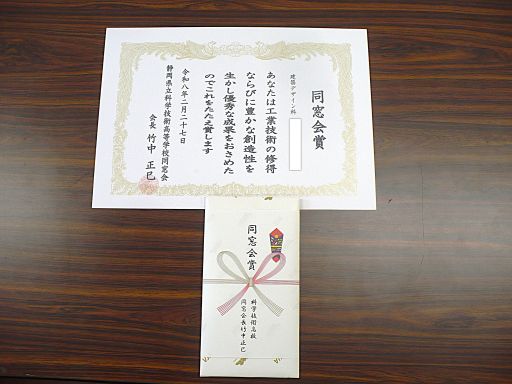 同窓会賞
建築デザイン科
あなたは工業技術の修得
ならびに豊かな創造性を
生かし優秀な成果をおさめた
のでこれをたたえ賞します
令和八年二月二十七日
静岡県立科学技術高等学校同窓会
会長 竹中 正巳
同窓会賞
科学技術高校
同窓会長竹中正巳